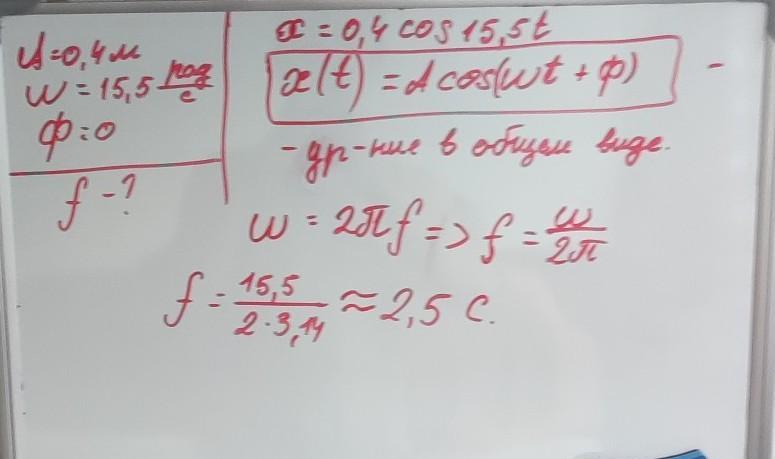 A=0,4м
ω = 15,5 рад/с
φ=0
f-?
x = 0,4 cos 15,5t
x(t) = A cos(ωt + φ) -
- ур-ние в общем виде.
ω = 2πf => f = ω/2π
f = 15,5/2·3,14 ≈ 2,5 с.